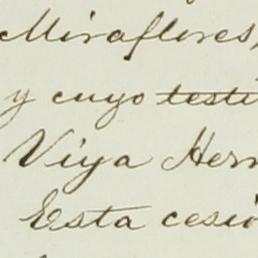 Miraflores,
y cuyo testi
Viya Hern
Esta cesió